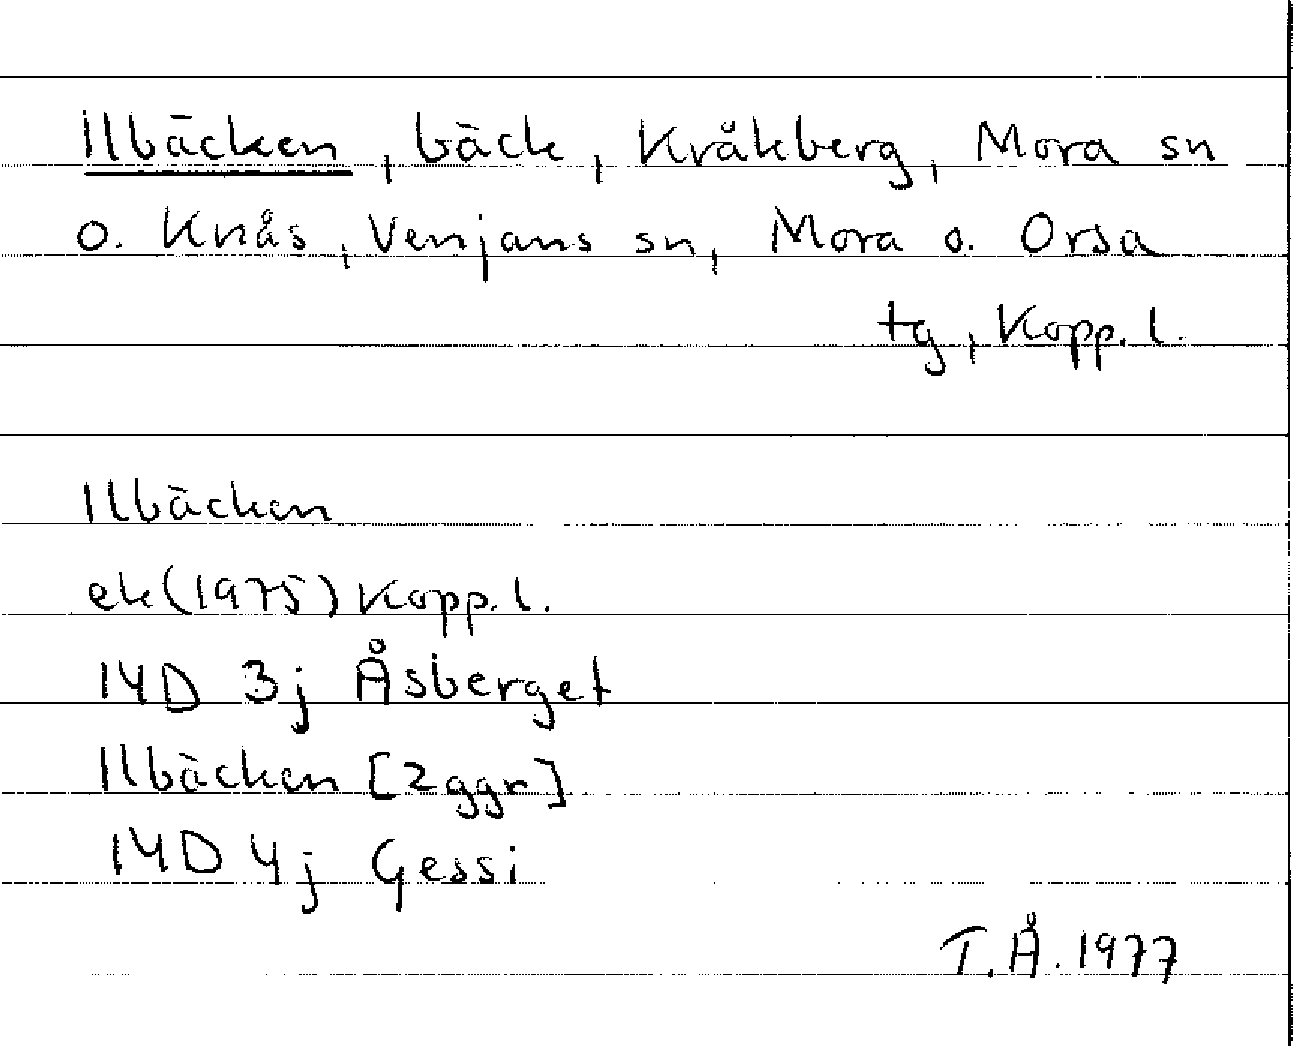 Ilbäcken, bäck, Kråkberg, Mora sn
o. Knås, Venjans sn, Mora o. Orsa
tg, Kopp. l.
Ilbäcken
ek (1975) Kopp. l.
14D 3j Åsberget
Ilbäcken [2 ggr]
14D 4j Gessi
T.Å. 1977